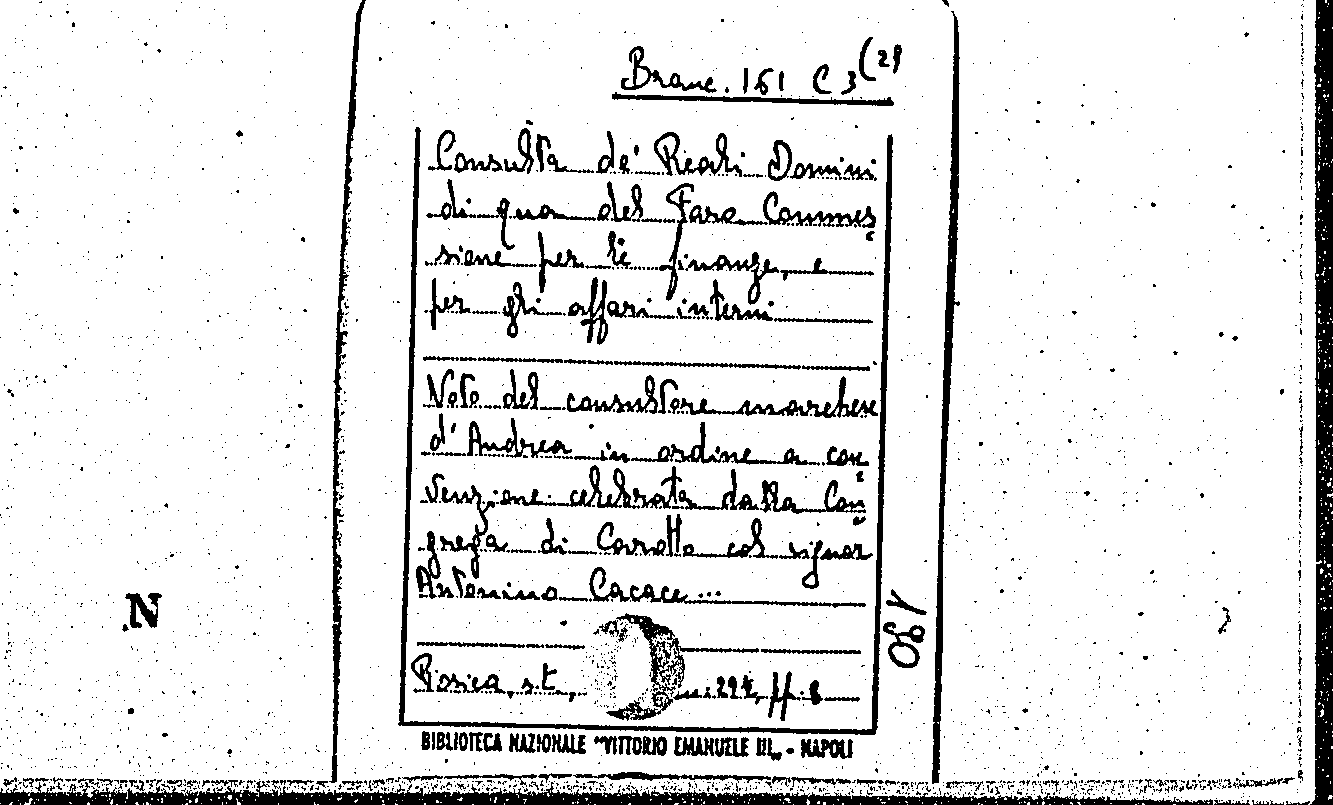 Branc. 161 C 3 (29
Consulta de' Reali Domini
di qua del Faro Commes
sione per le finanze, e
per gli affari interni
Voto del consultore marchese
d'Andrea in ordine a con
venzione celebrata dalla Con
grega di Carotto col signor
Antonino Cacace...
s.t., in: 294, ff. 8
BIBLIOTECA NAZIONALE "VITTORIO EMANUELE III„ - NAPOLI
N